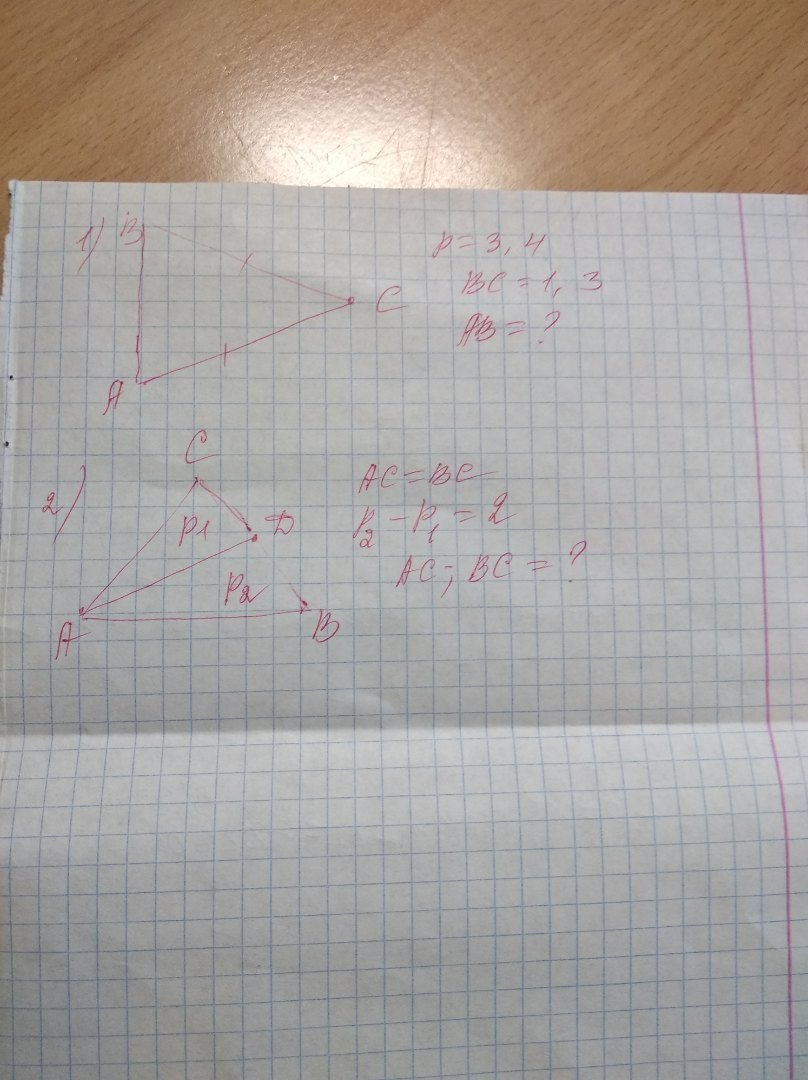 1) B
C
A
P = 3,4
BC = 1,3
AB = ?
2) C
P1
D
P2
A
B
AC = BC
P2 - P1 = 2
AC; BC = ?